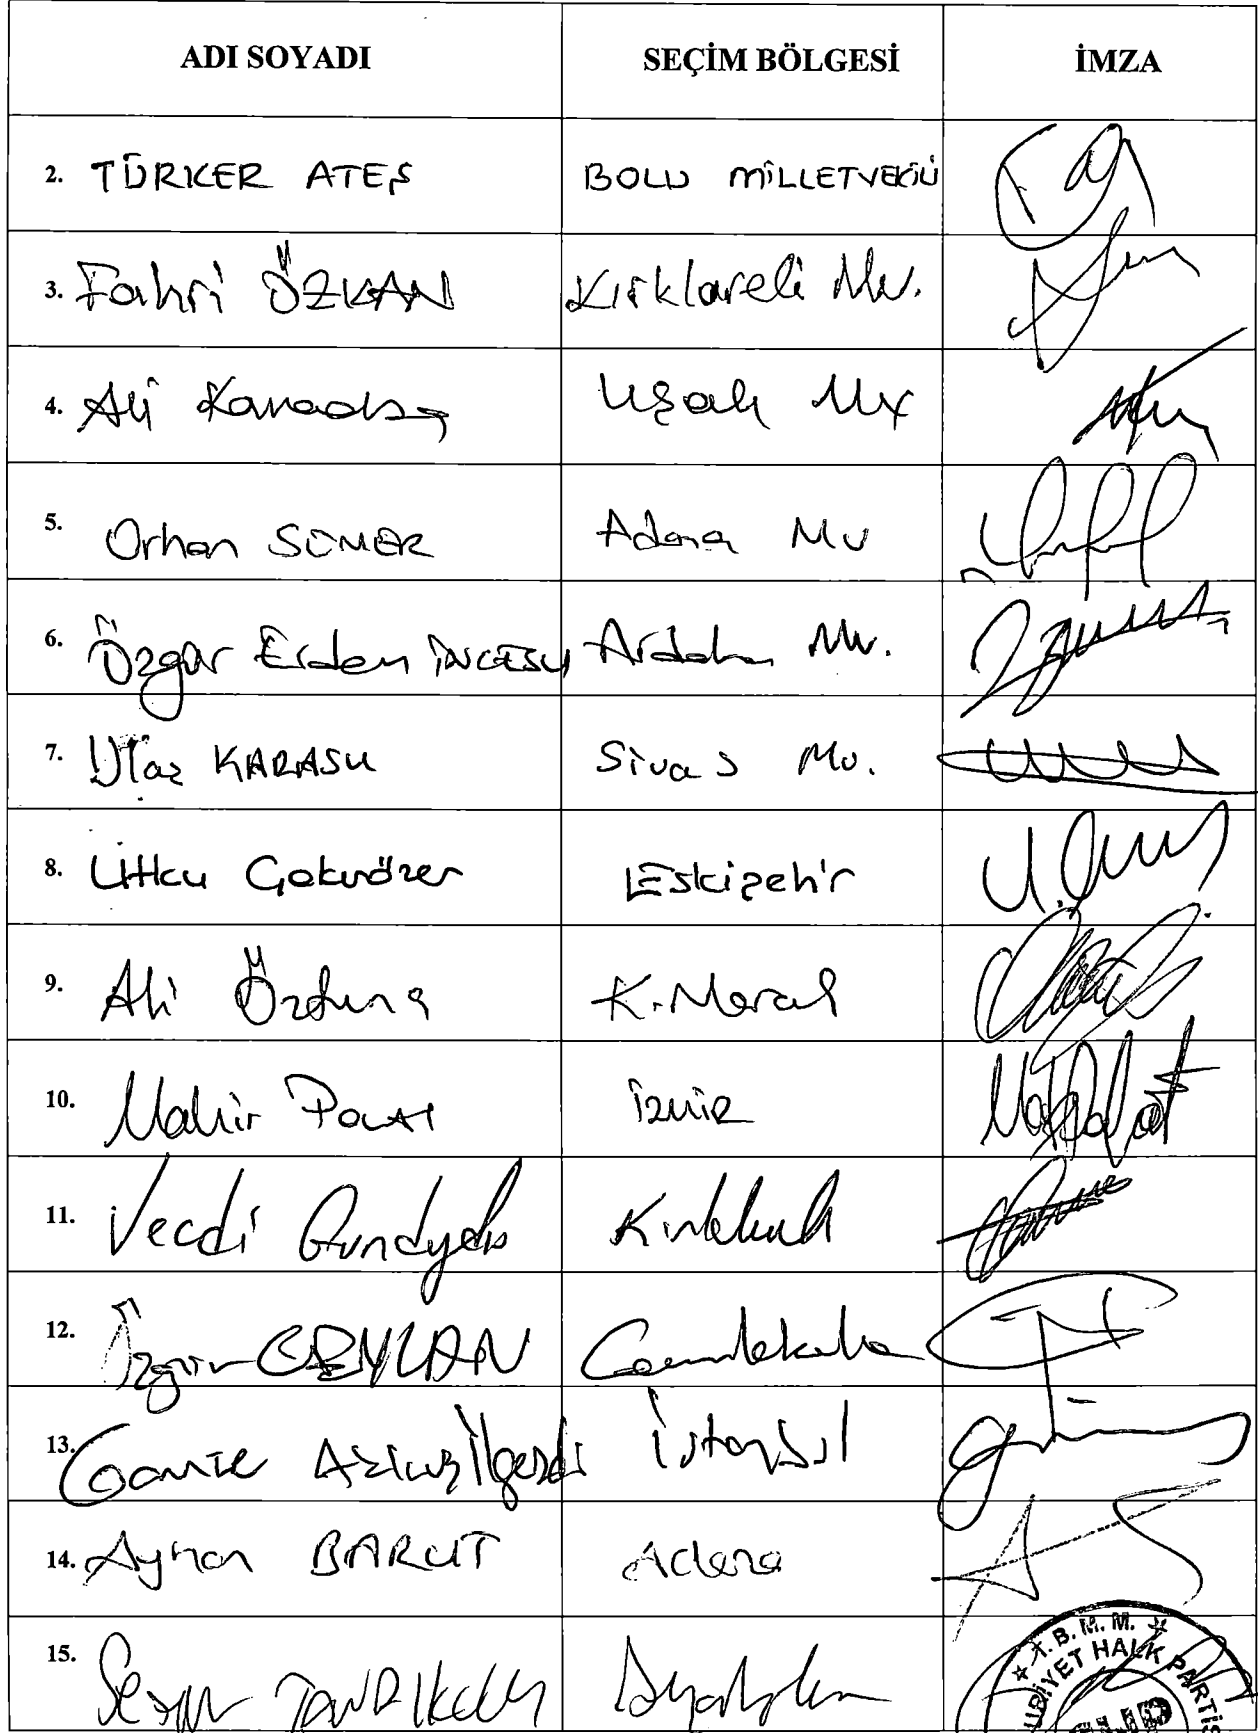 ADI SOYADI SEÇİM BÖLGESİ İMZA
2. TÜRKER ATEŞ BOLU MİLLETVEKİLİ
3. Fahri ÖZKAN Kırklareli Mv.
4. Ali Karaoba Uşak Mv
5. Orhan SÜMER Adana Mv
6. Özgür Erdem İNCESU Ardahan Mv.
7. Ulaş KARASU Sivas Mv.
8. Utku Çakırözer Eskişehir
9. Ali Öztunç K.Maraş
10. Mahir Polat İzmir
11. Vecdi Gündoğdu Kırklareli
12. Özgür CEYLAN Çanakkale
13. Gamze Akkuş İlgezdi İstanbul
14. Ayhan BARUT Adana
15. Sezgin TANRIKULU Diyarbakır
T.B.M.M.
HALK PARTİS